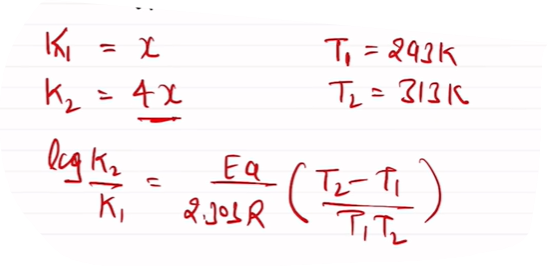 K₁ = x T₁ = 293K
K₂ = 4x T₂ = 313K
log K₂/K₁ = Ea/2.303R (T₂ - T₁/T₁T₂)